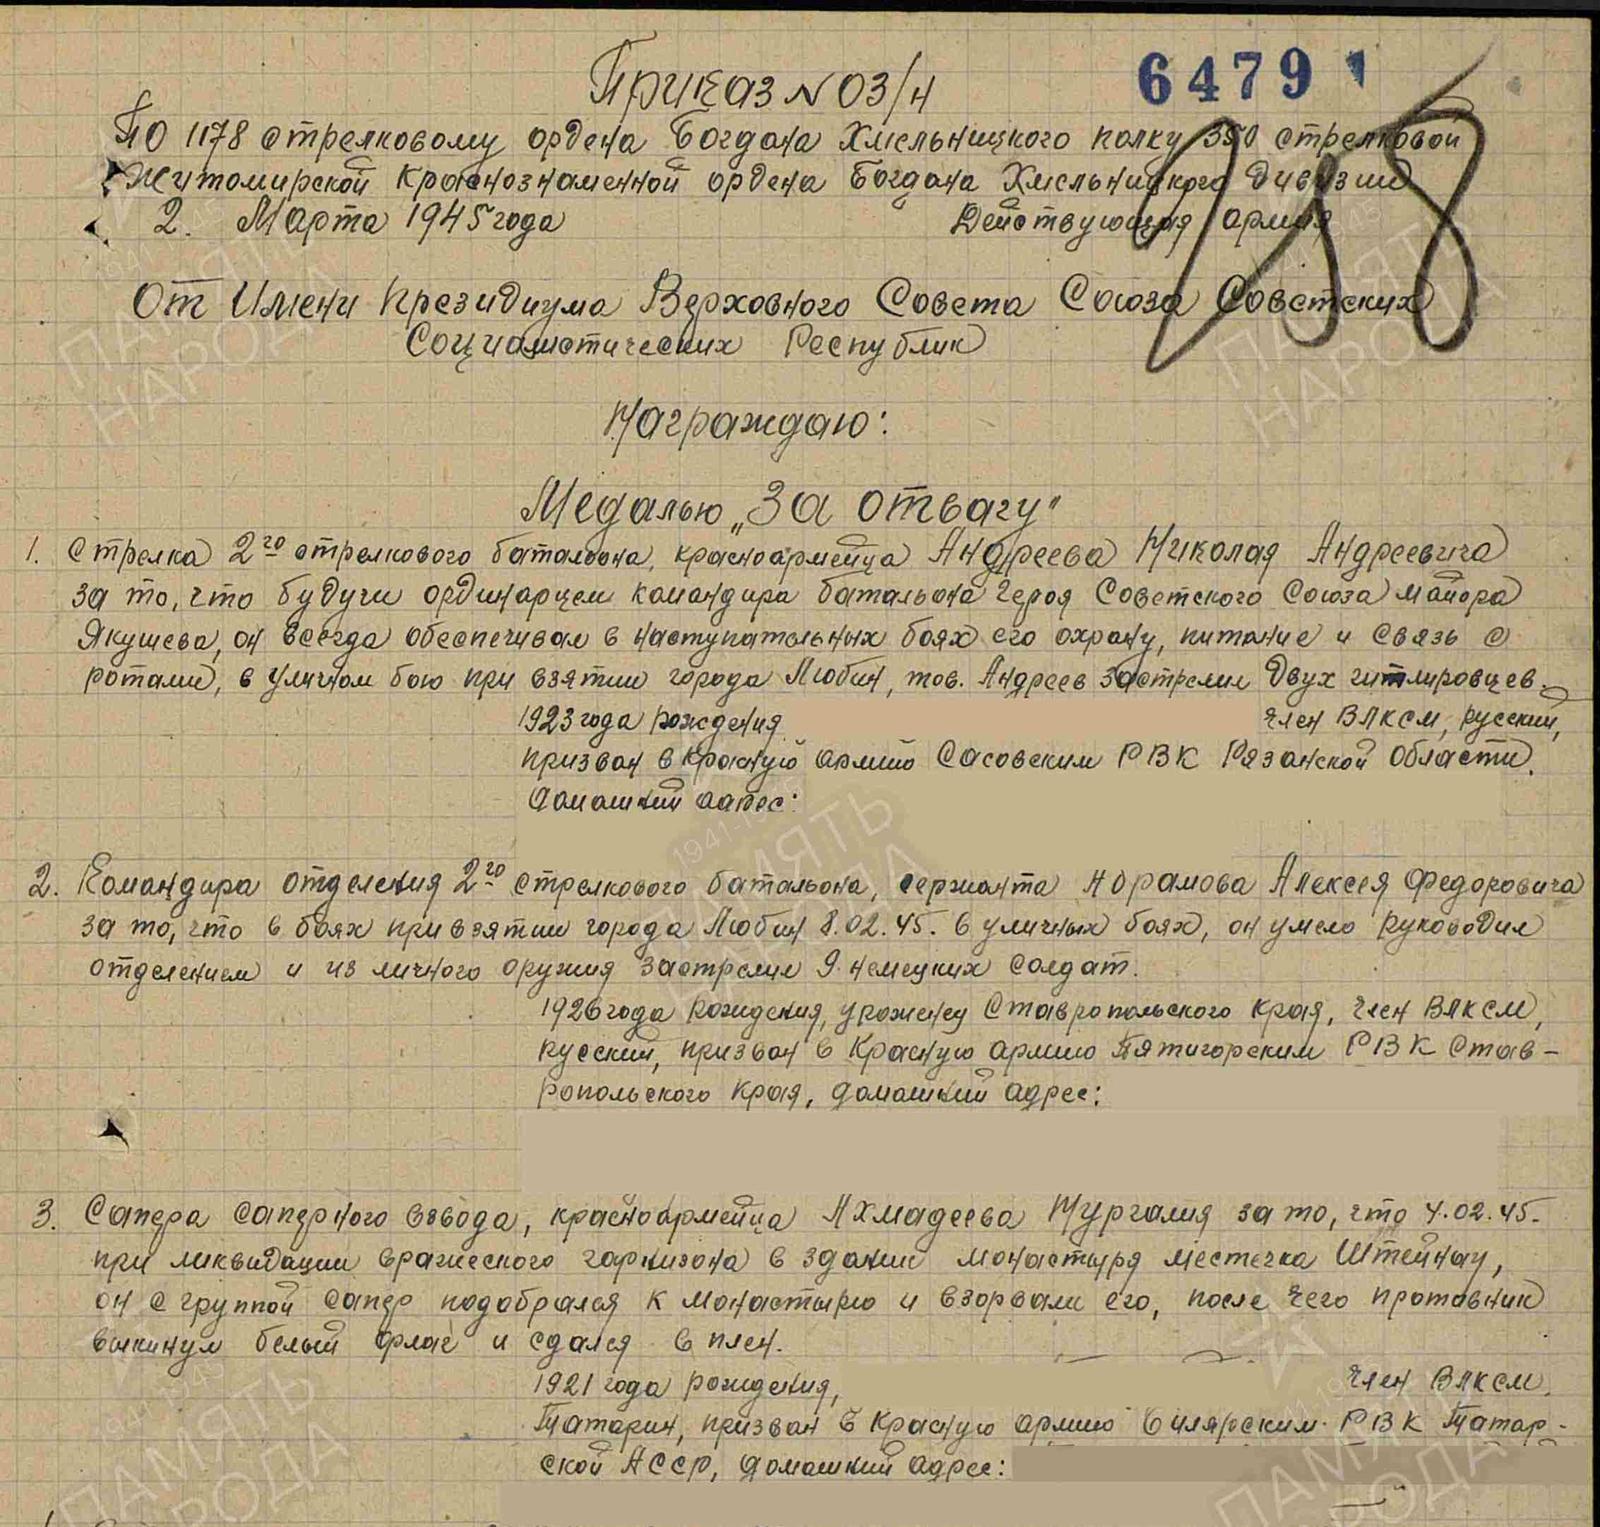 Приказ N 03/н
64791
По 1178 стрелковому ордена Богдана Хмельницкого полку 350 стрелковой
Житомирской Краснознаменной ордена Богдана Хмельницкого дивизии
2. Марта 1945 года Действующая армия
158
От Имени Президиума Верховного Совета Союза Советских
Социалистических Республик
Награждаю:
Медалью „За отвагу"
1. Стрелка 2го стрелкового баталиона, красноармейца Андреева Николая Андреевича
за то, что будучи ординарцем командира батальона Героя Советского Союза майора
Якушева, он всегда обеспечивал в наступательных боях его охрану, питание и связь с
ротами, в уличном бою при взятии города Любин, тов. Андреев застрелил двух гитлировцев.
1923 года рождения член ВЛКСМ, русский,
призван в Красную армию Сасовским РВК Рязанской области.
Домашний адрес:
2. Командира отделения 2го стрелкового батальона, сержанта Абрамова Алексея Федоровича
за то, что в боях при взятии города Любин 8.02.45. в уличных боях, он умело руководил
отделением и из личного оружия застрелил 9 немецких солдат.
1926 года рождения, уроженец Ставропольского края, член ВЛКСМ,
русский, призван в Красную армию Пятигорским РВК Став-
ропольского края, домашний адрес:
3. Сапера саперного взвода, красноармейца Ахмадеева Нургалия за то, что 4.02.45.
при ликвидации вражеского гарнизона в здании монастыря местечка Штейнау,
он с группой сапер подобрался к монастырю и взорвали его, после чего противник
выкинул белый флаг и сдался в плен.
1921 года рождения, член ВЛКСМ.
Татарин, призван в Красную армию Билярским РВК Татар-
ской АССР, домашний адрес:
ПАМЯТЬ
НАРОДА